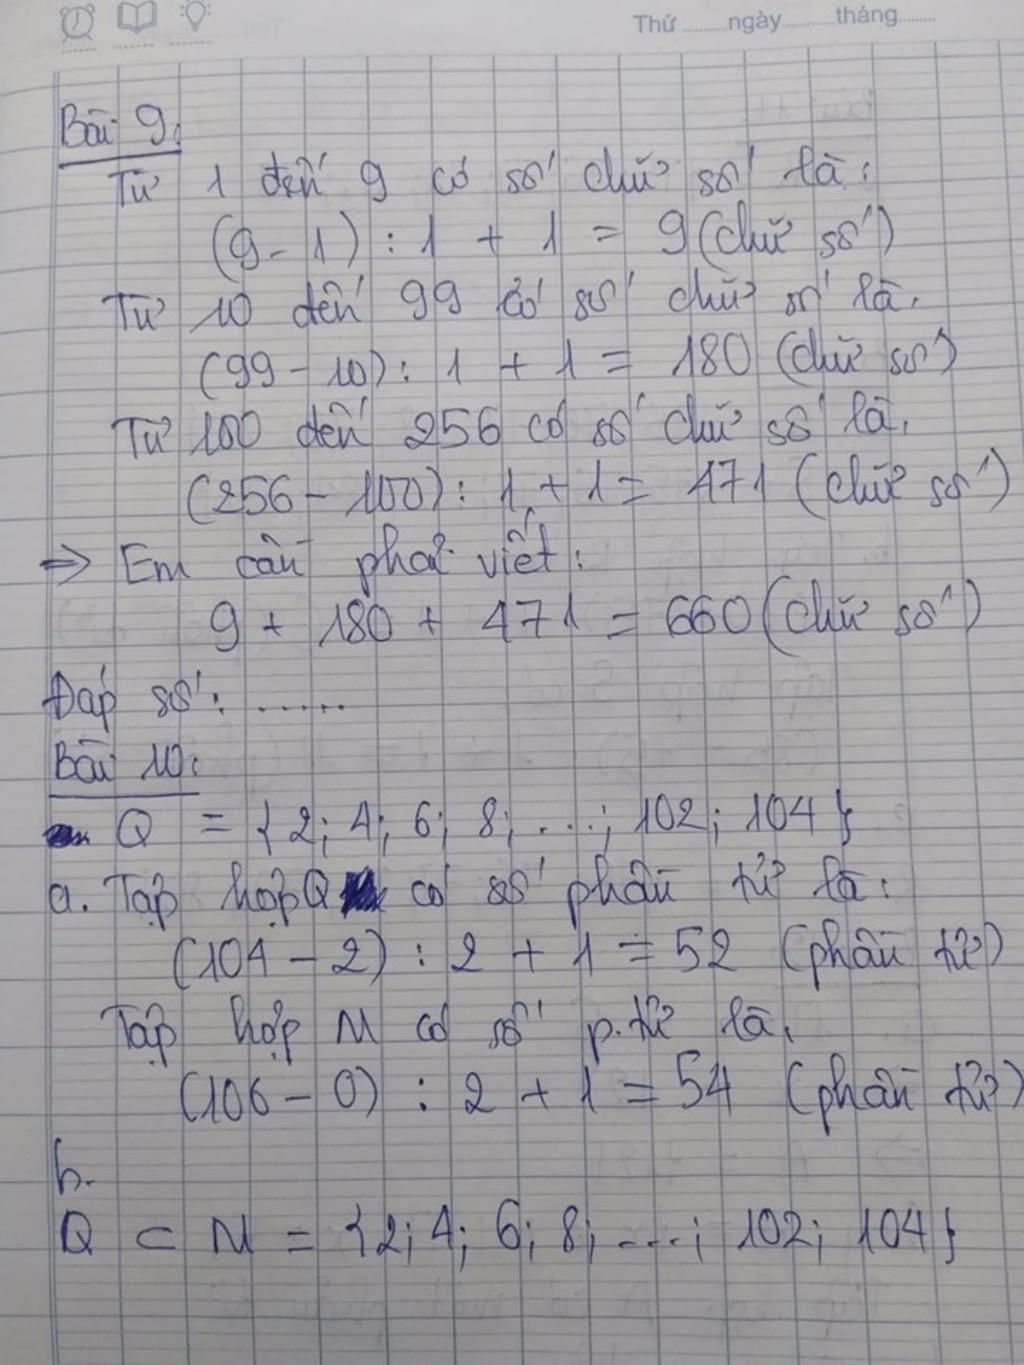 Thứ ........ngày.........tháng.......
Bài 9:
Từ 1 đến 9 có số chữ số là:
(9 - 1) : 1 + 1 = 9 (chữ số)
Từ 10 đến 99 có số chữ số là:
(99 - 10) : 1 + 1 = 180 (chữ số)
Từ 100 đến 256 có số chữ số là:
(256 - 100) : 1 + 1 = 471 (chữ số)
=> Em cần phải viết:
9 + 180 + 471 = 660 (chữ số)
Đáp số: ......
Bài 10:
Q = {2; 4; 6; 8; ...; 102; 104}
a. Tập hợp Q có số phần tử là:
(104 - 2) : 2 + 1 = 52 (phần tử)
Tập hợp M có số p.tử là:
(106 - 0) : 2 + 1 = 54 (phần tử)
b.
Q ⊂ M = {2; 4; 6; 8; ....; 102; 104}